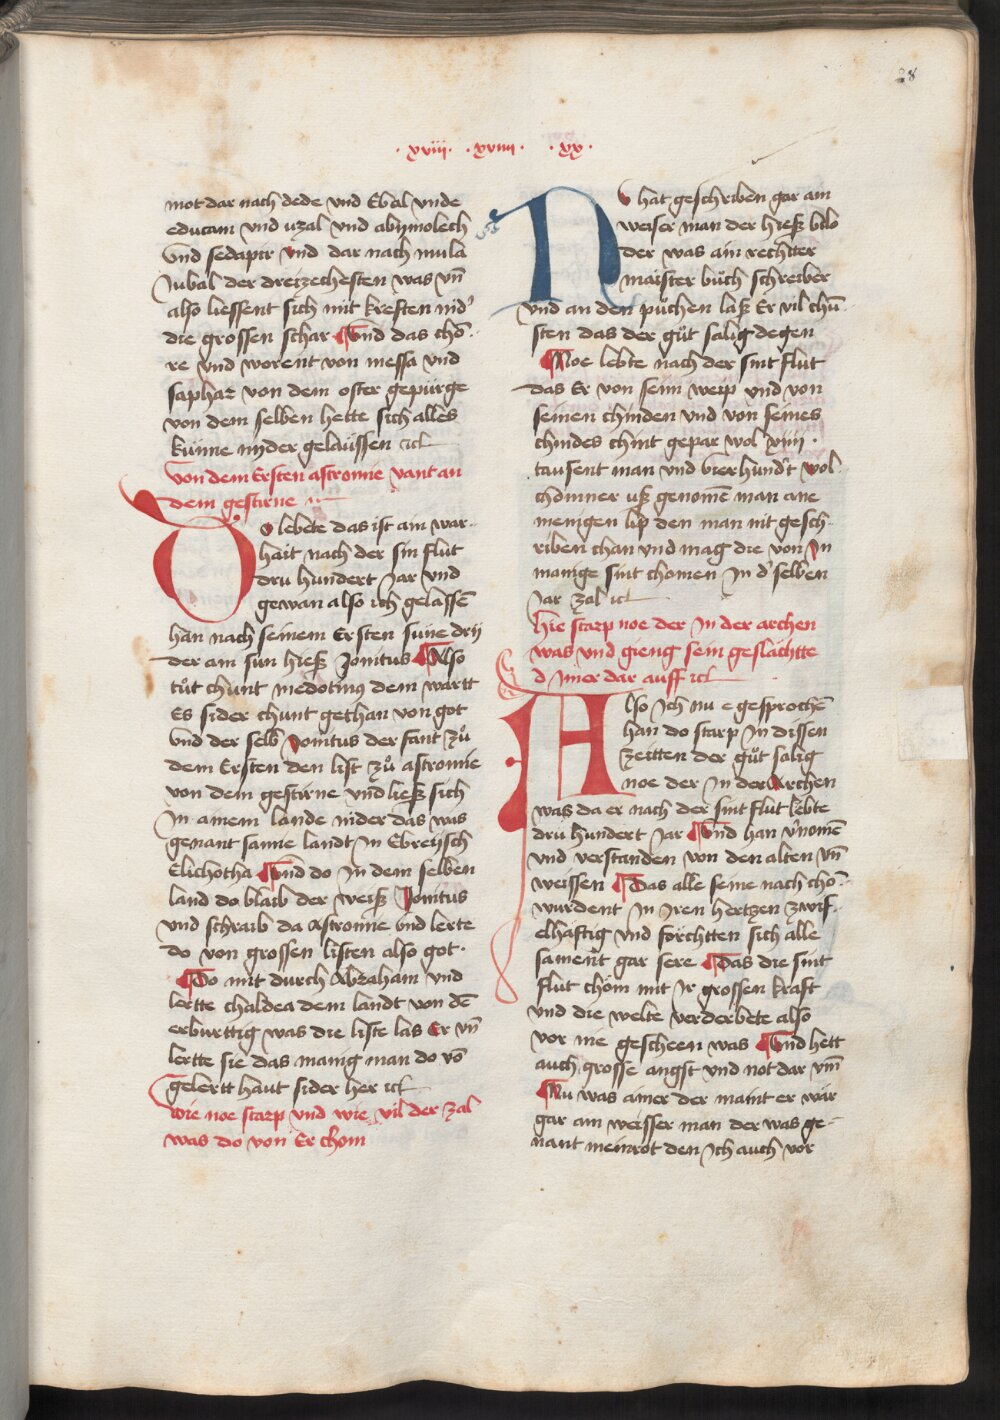 28
·xviii· ·xviiii· ·xx·
mot dar nach dede vnd Ebal vnde
educam vnd vzal vnd abymolech
vnd sedapir vnd dar nach mula
Jubal der dreizechesten was vn̄
also liessent sich mit kresten nid'
die grossen schar Vnd das cho͞
re vnd worent von messa vnd
saphar von dem oster gepürge
von dem selben hette sich alles
künne nyder gelaüssen ecl
Von dem Ersten astronnie vant an
dem gestirne
Do lebete das ist ain war-
hait nach der sin flut
dru hundert Jar vnd
gewan also ich gelassē
han nach seinem Ersten sune drij
der ain sun hieß Jonitus Also
tuͦt chunt medotinus dem wartt
Es sider chunt gethan von got
vnd der selb Jonitus der fant zuͦ
dem Ersten den list zuͦ astronnie
von dem gestirne vnd ließ sich
In ainem lande nider das was
genant sanne landt In Ebreijsch
Elichotha Vnd do In dem selben
land do blaib der weiß Jonitus
vnd schraib da Astronnie vnd lerte
do von grossen listen also got·
Do mit durch Abraham vnd
lertte chaldea dem landt von dē
erburttig was die liste las Er vn̄
lertte sie das manig man do vō
gelertt haut sider her ecl
wie noe starp vnd wie vil der zal
was do von Er chom
Nv hat geschriben gar ain
weiser man der hieß bilo
der was ain rechtter
maister buͦch schreiber
vnd an den puͤchen laß Er vil chu͞
sten das der guͦt salig degen
Noe lebte nach der sint flut
das Er von seim weip vnd von
seinen chinden vnd von seines
chindes chint gepar wol xiiii·
tausent man vnd vierhund't wol
chomner uß genomē man ane
menigen lip den man nit gesch-
riben chan vnd mag die von In
manige sint chomen In d' selben
Jar zal ecl
hie starp noe der In der archen
was vnd gieng sein geslächtte
d Imer dar auff ecl
Also Ich nu e gesprochē
han do starp In dissen
zeitten der guͦt salig
noe der In der Archen
was da er nach der sint flut lebte
drü hundert Jar Vnd han v'nomē
vnd verstanden von den alten vn̄
weissen Das alle seine nach cho͞
wurdent In Iren hertzen zwif-
elhaftig vnd forchtten sich alle
sament gar sere Das die sint
flut chom mit Ir grossen kraft
vnd die welte verderbete also
vor me gescheen was Vnd hett
auch grosse angst vnd not dar vm̄
Nu was ainer der maint er wär
gar ain weisser man der was ge-
nant meinrot den Ich auch vor